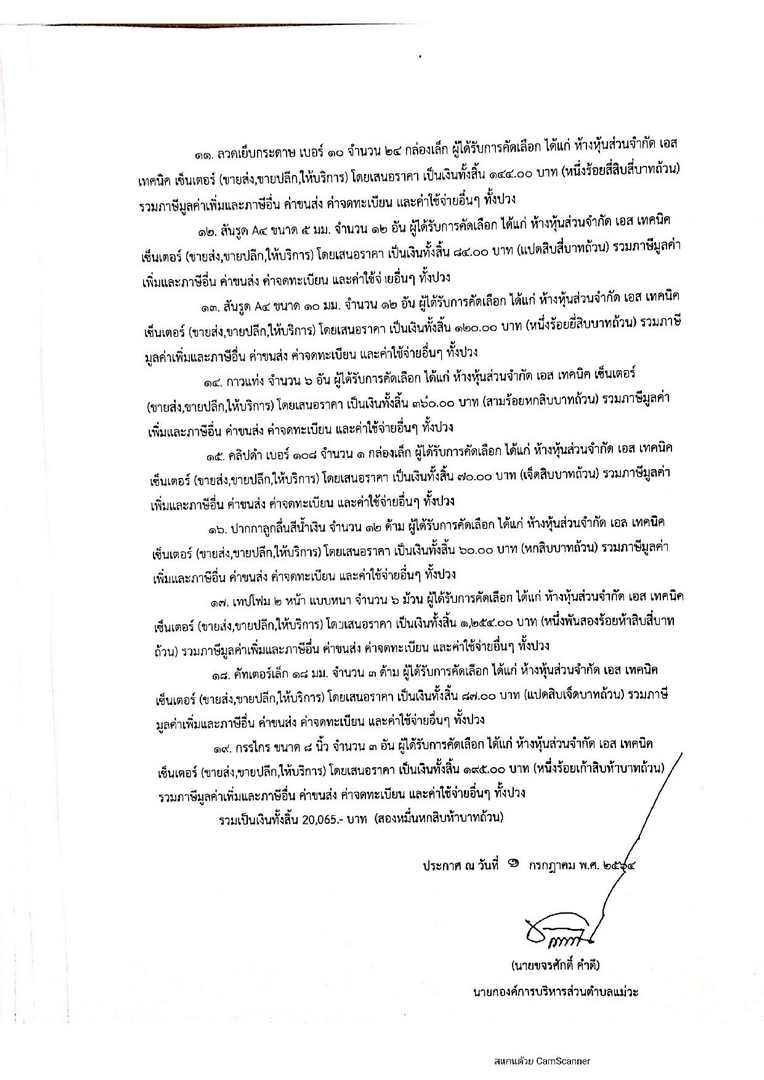 ๑๑. ลวดเย็บกระดาษ เบอร์ ๑๐ จำนวน ๒๔ กล่องเล็ก ผู้ได้รับการคัดเลือก ได้แก่ ห้างหุ้นส่วนจำกัด เอส
เทคนิค เซ็นเตอร์ (ขายส่ง,ขายปลีก,ให้บริการ) โดยเสนอราคา เป็นเงินทั้งสิ้น ๑๔๔.๐๐ บาท (หนึ่งร้อยสี่สิบสี่บาทถ้วน)
รวมภาษีมูลค่าเพิ่มและภาษีอื่น ค่าขนส่ง ค่าจดทะเบียน และค่าใช้จ่ายอื่นๆ ทั้งปวง
๑๒. สันรูด A๔ ขนาด ๕ มม. จำนวน ๑๒ อัน ผู้ได้รับการคัดเลือก ได้แก่ ห้างหุ้นส่วนจำกัด เอส เทคนิค
เซ็นเตอร์ (ขายส่ง,ขายปลีก,ให้บริการ) โดยเสนอราคา เป็นเงินทั้งสิ้น ๘๔.๐๐ บาท (แปดสิบสี่บาทถ้วน) รวมภาษีมูลค่า
เพิ่มและภาษีอื่น ค่าขนส่ง ค่าจดทะเบียน และค่าใช้จ่ายอื่นๆ ทั้งปวง
๑๓. สันรูด A๔ ขนาด ๑๐ มม. จำนวน ๑๒ อัน ผู้ได้รับการคัดเลือก ได้แก่ ห้างหุ้นส่วนจำกัด เอส เทคนิค
เซ็นเตอร์ (ขายส่ง,ขายปลีก,ให้บริการ) โดยเสนอราคา เป็นเงินทั้งสิ้น ๑๒๐.๐๐ บาท (หนึ่งร้อยยี่สิบบาทถ้วน) รวมภาษี
มูลค่าเพิ่มและภาษีอื่น ค่าขนส่ง ค่าจดทะเบียน และค่าใช้จ่ายอื่นๆ ทั้งปวง
๑๔. กาวแท่ง จำนวน ๖ อัน ผู้ได้รับการคัดเลือก ได้แก่ ห้างหุ้นส่วนจำกัด เอส เทคนิค เซ็นเตอร์
(ขายส่ง,ขายปลีก,ให้บริการ) โดยเสนอราคา เป็นเงินทั้งสิ้น ๓๖๐.๐๐ บาท (สามร้อยหกสิบบาทถ้วน) รวมภาษีมูลค่า
เพิ่มและภาษีอื่น ค่าขนส่ง ค่าจดทะเบียน และค่าใช้จ่ายอื่นๆ ทั้งปวง
๑๕. คลิปดำ เบอร์ ๑๐๘ จำนวน ๑ กล่องเล็ก ผู้ได้รับการคัดเลือก ได้แก่ ห้างหุ้นส่วนจำกัด เอส เทคนิค
เซ็นเตอร์ (ขายส่ง,ขายปลีก,ให้บริการ) โดยเสนอราคา เป็นเงินทั้งสิ้น ๗๐.๐๐ บาท (เจ็ดสิบบาทถ้วน) รวมภาษีมูลค่า
เพิ่มและภาษีอื่น ค่าขนส่ง ค่าจดทะเบียน และค่าใช้จ่ายอื่นๆ ทั้งปวง
๑๖. ปากกาลูกลื่นสีน้ำเงิน จำนวน ๑๒ ด้าม ผู้ได้รับการคัดเลือก ได้แก่ ห้างหุ้นส่วนจำกัด เอส เทคนิค
เซ็นเตอร์ (ขายส่ง,ขายปลีก,ให้บริการ) โดยเสนอราคา เป็นเงินทั้งสิ้น ๖๐.๐๐ บาท (หกสิบบาทถ้วน) รวมภาษีมูลค่า
เพิ่มและภาษีอื่น ค่าขนส่ง ค่าจดทะเบียน และค่าใช้จ่ายอื่นๆ ทั้งปวง
๑๗. เทปโฟม ๒ หน้า แบบหนา จำนวน ๖ ม้วน ผู้ได้รับการคัดเลือก ได้แก่ ห้างหุ้นส่วนจำกัด เอส เทคนิค
เซ็นเตอร์ (ขายส่ง,ขายปลีก,ให้บริการ) โดยเสนอราคา เป็นเงินทั้งสิ้น ๑,๒๕๔.๐๐ บาท (หนึ่งพันสองร้อยห้าสิบสี่บาท
ถ้วน) รวมภาษีมูลค่าเพิ่มและภาษีอื่น ค่าขนส่ง ค่าจดทะเบียน และค่าใช้จ่ายอื่นๆ ทั้งปวง
๑๘. คัทเตอร์เล็ก ๑๘ มม. จำนวน ๓ ด้าม ผู้ได้รับการคัดเลือก ได้แก่ ห้างหุ้นส่วนจำกัด เอส เทคนิค
เซ็นเตอร์ (ขายส่ง,ขายปลีก,ให้บริการ) โดยเสนอราคา เป็นเงินทั้งสิ้น ๘๗.๐๐ บาท (แปดสิบเจ็ดบาทถ้วน) รวมภาษี
มูลค่าเพิ่มและภาษีอื่น ค่าขนส่ง ค่าจดทะเบียน และค่าใช้จ่ายอื่นๆ ทั้งปวง
๑๙. กรรไกร ขนาด ๘ นิ้ว จำนวน ๓ อัน ผู้ได้รับการคัดเลือก ได้แก่ ห้างหุ้นส่วนจำกัด เอส เทคนิค
เซ็นเตอร์ (ขายส่ง,ขายปลีก,ให้บริการ) โดยเสนอราคา เป็นเงินทั้งสิ้น ๑๙๕.๐๐ บาท (หนึ่งร้อยเก้าสิบห้าบาทถ้วน)
รวมภาษีมูลค่าเพิ่มและภาษีอื่น ค่าขนส่ง ค่าจดทะเบียน และค่าใช้จ่ายอื่นๆ ทั้งปวง
รวมเป็นเงินทั้งสิ้น 20,065.- บาท (สองหมื่นหกสิบห้าบาทถ้วน)
ประกาศ ณ วันที่ ๑ กรกฎาคม พ.ศ. ๒๕๖๔
(นายขจรศักดิ์ คำดี)
นายกองค์การบริหารส่วนตำบลแม่วะ
สแกนด้วย CamScanner